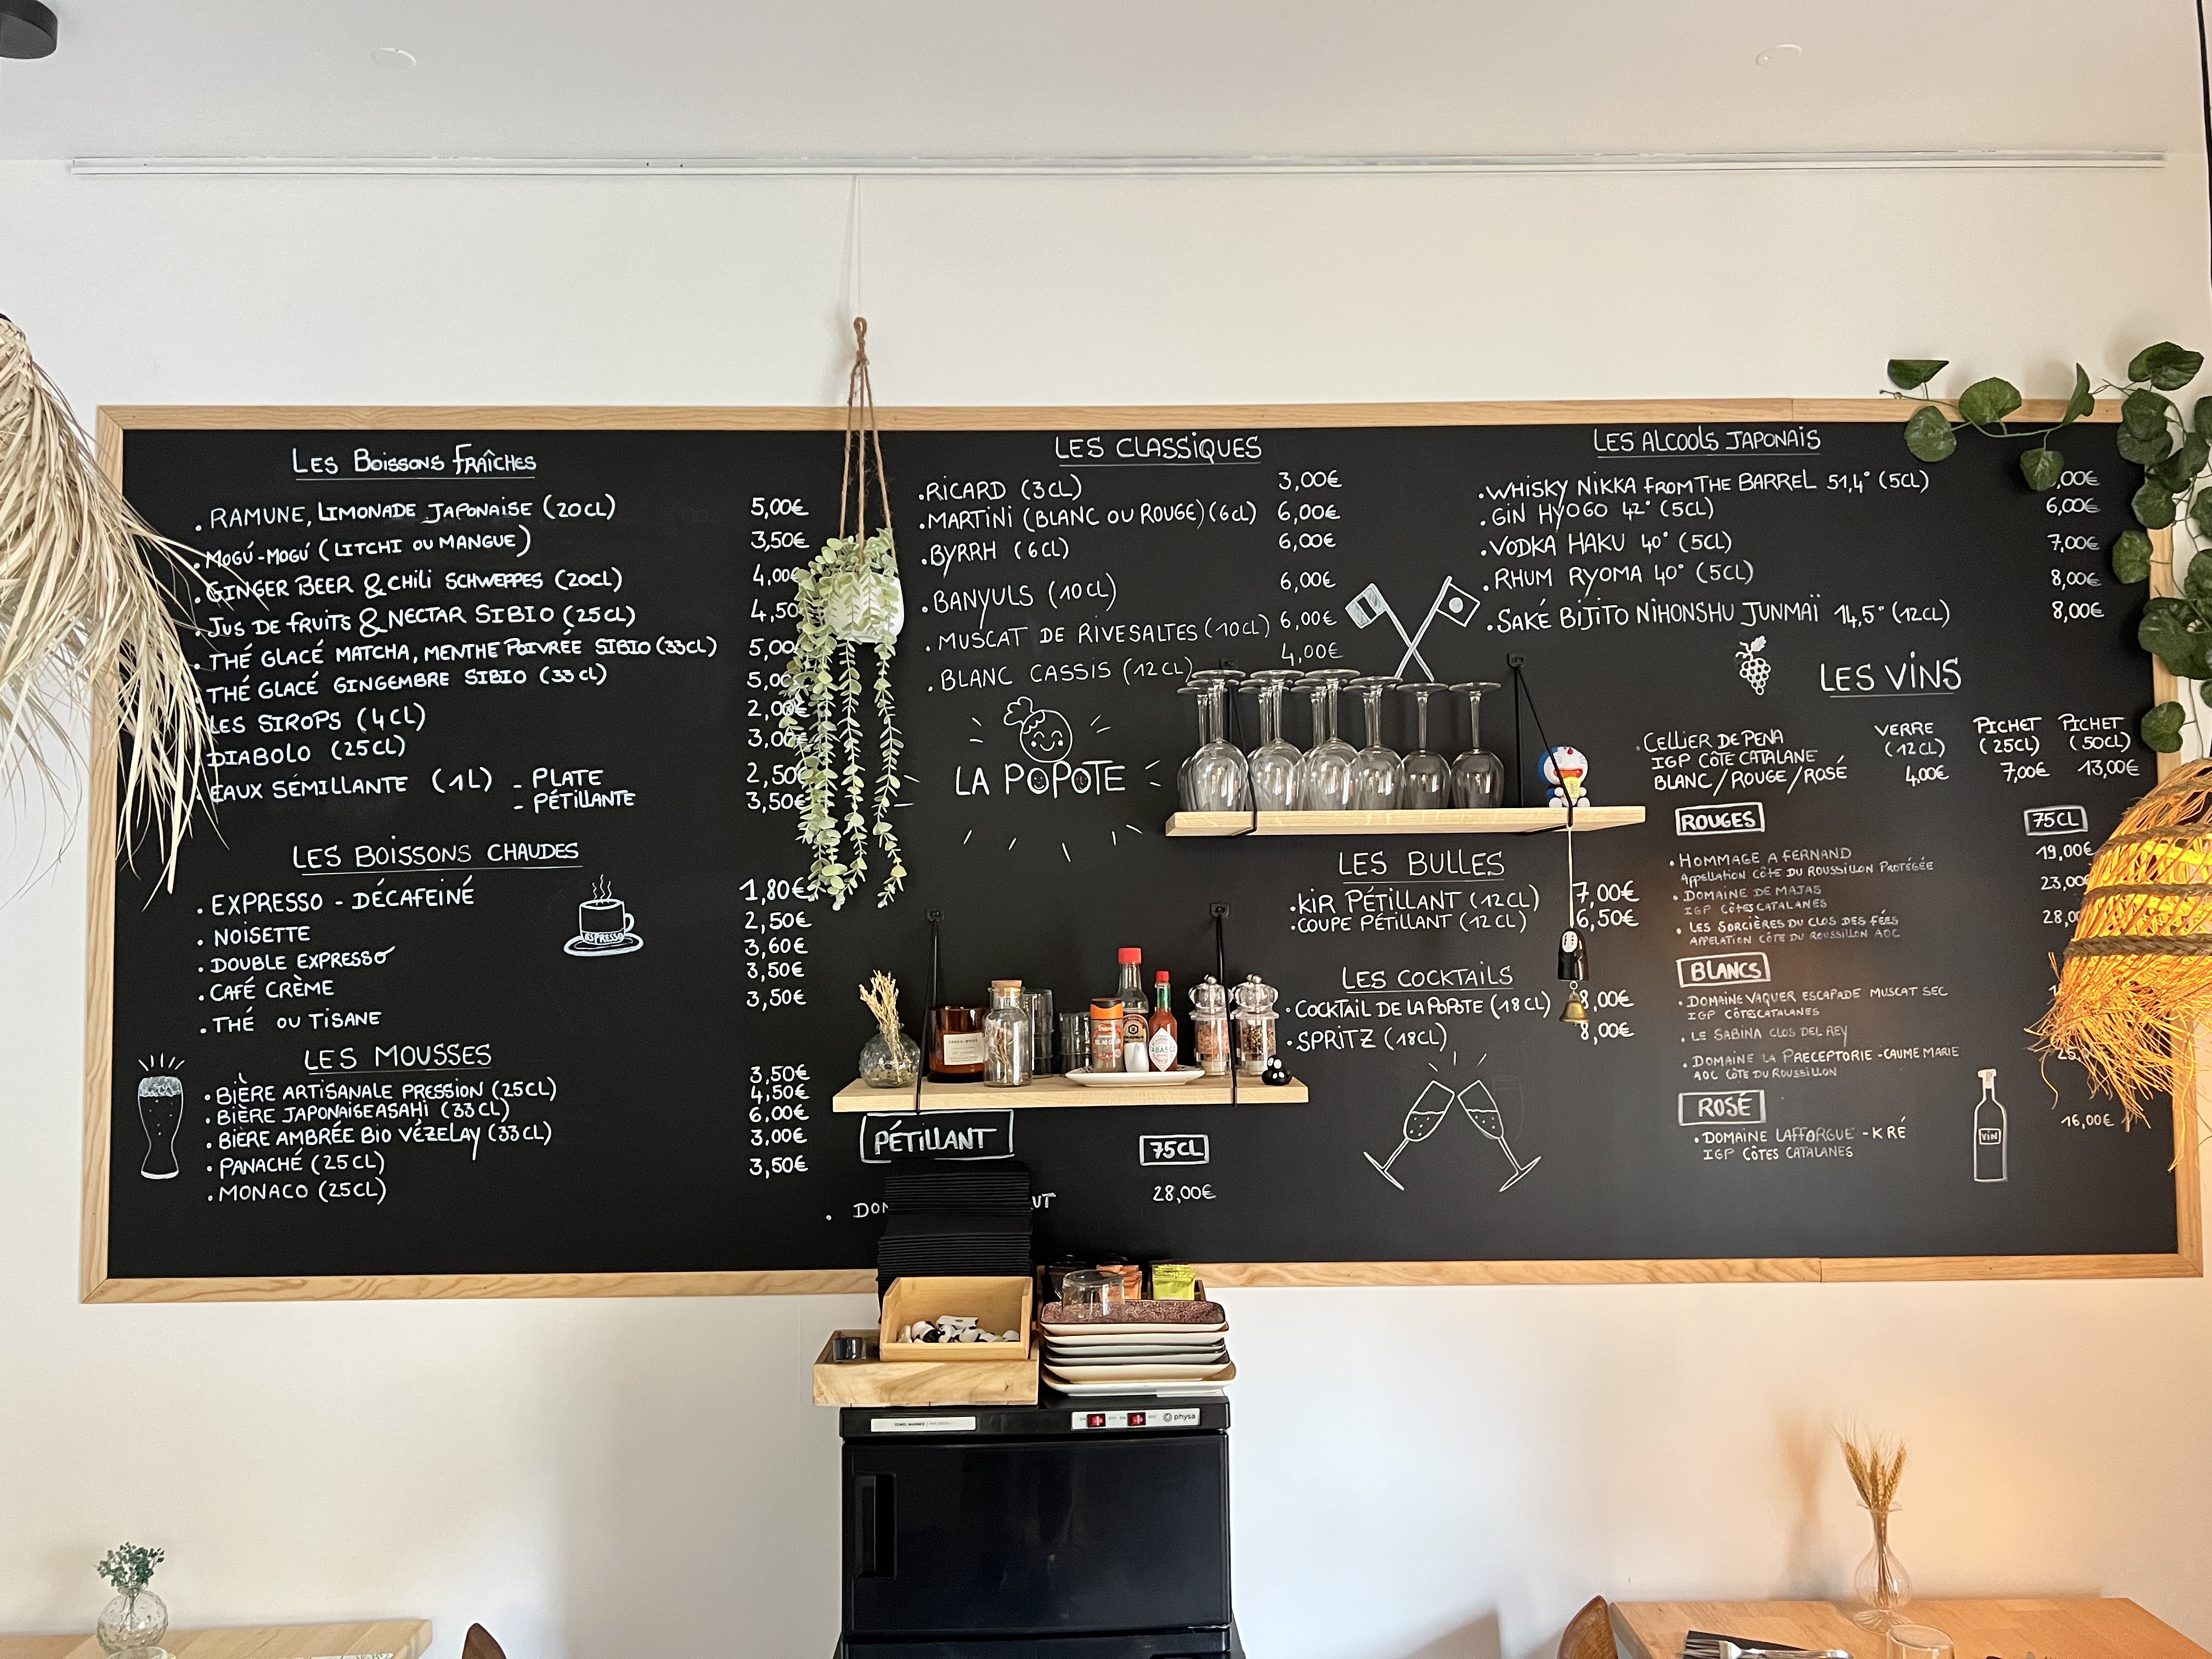 LES BOISSONS FRAÎCHES
. RAMUNE, LIMONADE JAPONAISE (20CL) 5,00€
. MOGU-MOGU (LITCHI OU MANGUE) 3,50€
. GINGER BEER & CHILI SCHWEPPES (20CL) 4,00€
. JUS DE FRUITS & NECTAR SIBIO (25CL) 4,50
. THÉ GLACÉ MATCHA, MENTHE POIVRÉE SIBIO (33CL) 5,00
THÉ GLACÉ GINGEMBRE SIBIO (33CL) 5,00
LES SIROPS (4CL) 2,00€
DIABOLO (25CL) 3,00€
EAUX SÉMILLANTE (1L) - PLATE 2,50€
- PÉTILLANTE 3,50€
LES BOISSONS CHAUDES
. EXPRESSO - DÉCAFEINÉ 1,80€
. NOISETTE 2,50€
. DOUBLE EXPRESSO 3,60€
. CAFÉ CRÈME 3,50€
. THÉ OU TISANE 3,50€
ESPRESSO
LES MOUSSES
. BIÈRE ARTISANALE PRESSION (25CL) 3,50€
. BIÈRE JAPONAISE ASAHI (33CL) 4,50€
. BIÈRE AMBRÉE BIO VÉZELAY (33CL) 6,00€
. PANACHÉ (25CL) 3,00€
. MONACO (25CL) 3,50€
LES CLASSIQUES
. RICARD (3CL) 3,00€
. MARTINI (BLANC OU ROUGE) (6CL) 6,00€
. BYRRH (6CL) 6,00€
. BANYULS (10CL) 6,00€
. MUSCAT DE RIVESALTES (10CL) 6,00€
. BLANC CASSIS (12CL) 4,00€
LA POPOTE
PÉTILLANT 75CL
28,00€
LES BULLES
. KIR PÉTILLANT (12CL) 7,00€
. COUPE PÉTILLANT (12CL) 6,50€
LES COCKTAILS
. COCKTAIL DE LA POPOTE (18CL) 8,00€
. SPRITZ (18CL) 8,00€
LES ALCOOLS JAPONAIS
. WHISKY NIKKA FROM THE BARREL 51,4° (5CL)
. GIN HYOGO 42° (5CL) 6,00€
. VODKA HAKU 40° (5CL) 7,00€
. RHUM RYOMA 40° (5CL) 8,00€
. SAKÉ BIJITO NIHONSHU JUNMAÏ 14,5° (12CL) 8,00€
LES VINS
VERRE (12CL) PICHET (25CL) PICHET (50CL)
. CELLIER DE PENA
IGP CÔTE CATALANE
BLANC/ROUGE/ROSÉ 4,00€ 7,00€ 13,00€
ROUGES 75CL
. HOMMAGE A FERNAND 19,00€
APPELLATION CÔTE DU ROUSSILLON PROTÉGÉE
. DOMAINE DE MAJAS 23,00€
IGP CÔTES CATALANES
. LES SORCIÈRES DU CLOS DES FÉES 28,00
APPELATION CÔTE DU ROUSSILLON AOC
BLANCS
. DOMAINE VAQUER ESCAPADE MUSCAT SEC
IGP CÔTES CATALANES
. LE SABINA CLOS DEL REY
. DOMAINE LA PRECEPTORIE - CAUME MARIE
AOC CÔTE DU ROUSSILLON
ROSÉ
. DOMAINE LAFFORGUE - KRÉ 16,00€
IGP CÔTES CATALANES
VIN
TABASCO
physa